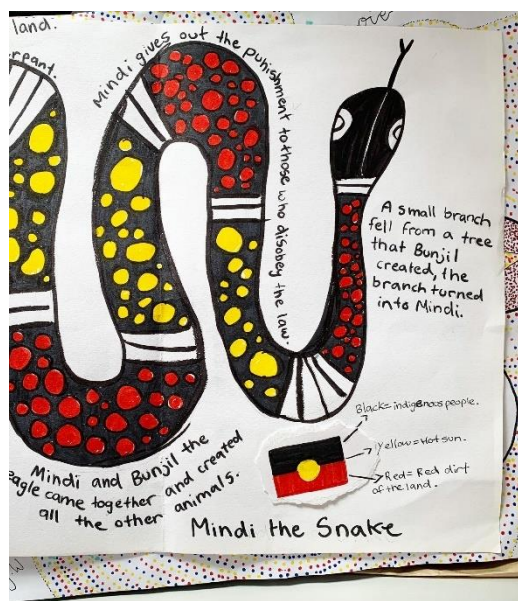 over
land.
rpant.
Mindi gives out the punishment to those who disobey the law.
A small branch
fell from a tree
that Bunjil
created, the
branch turned
into Mindi.
Black=indigenous people.
Yellow=Hot sun.
Red=Red dirt
of the land.
Mindi and Bunjil the
eagle came together and created
all the other animals.
Mindi the Snake